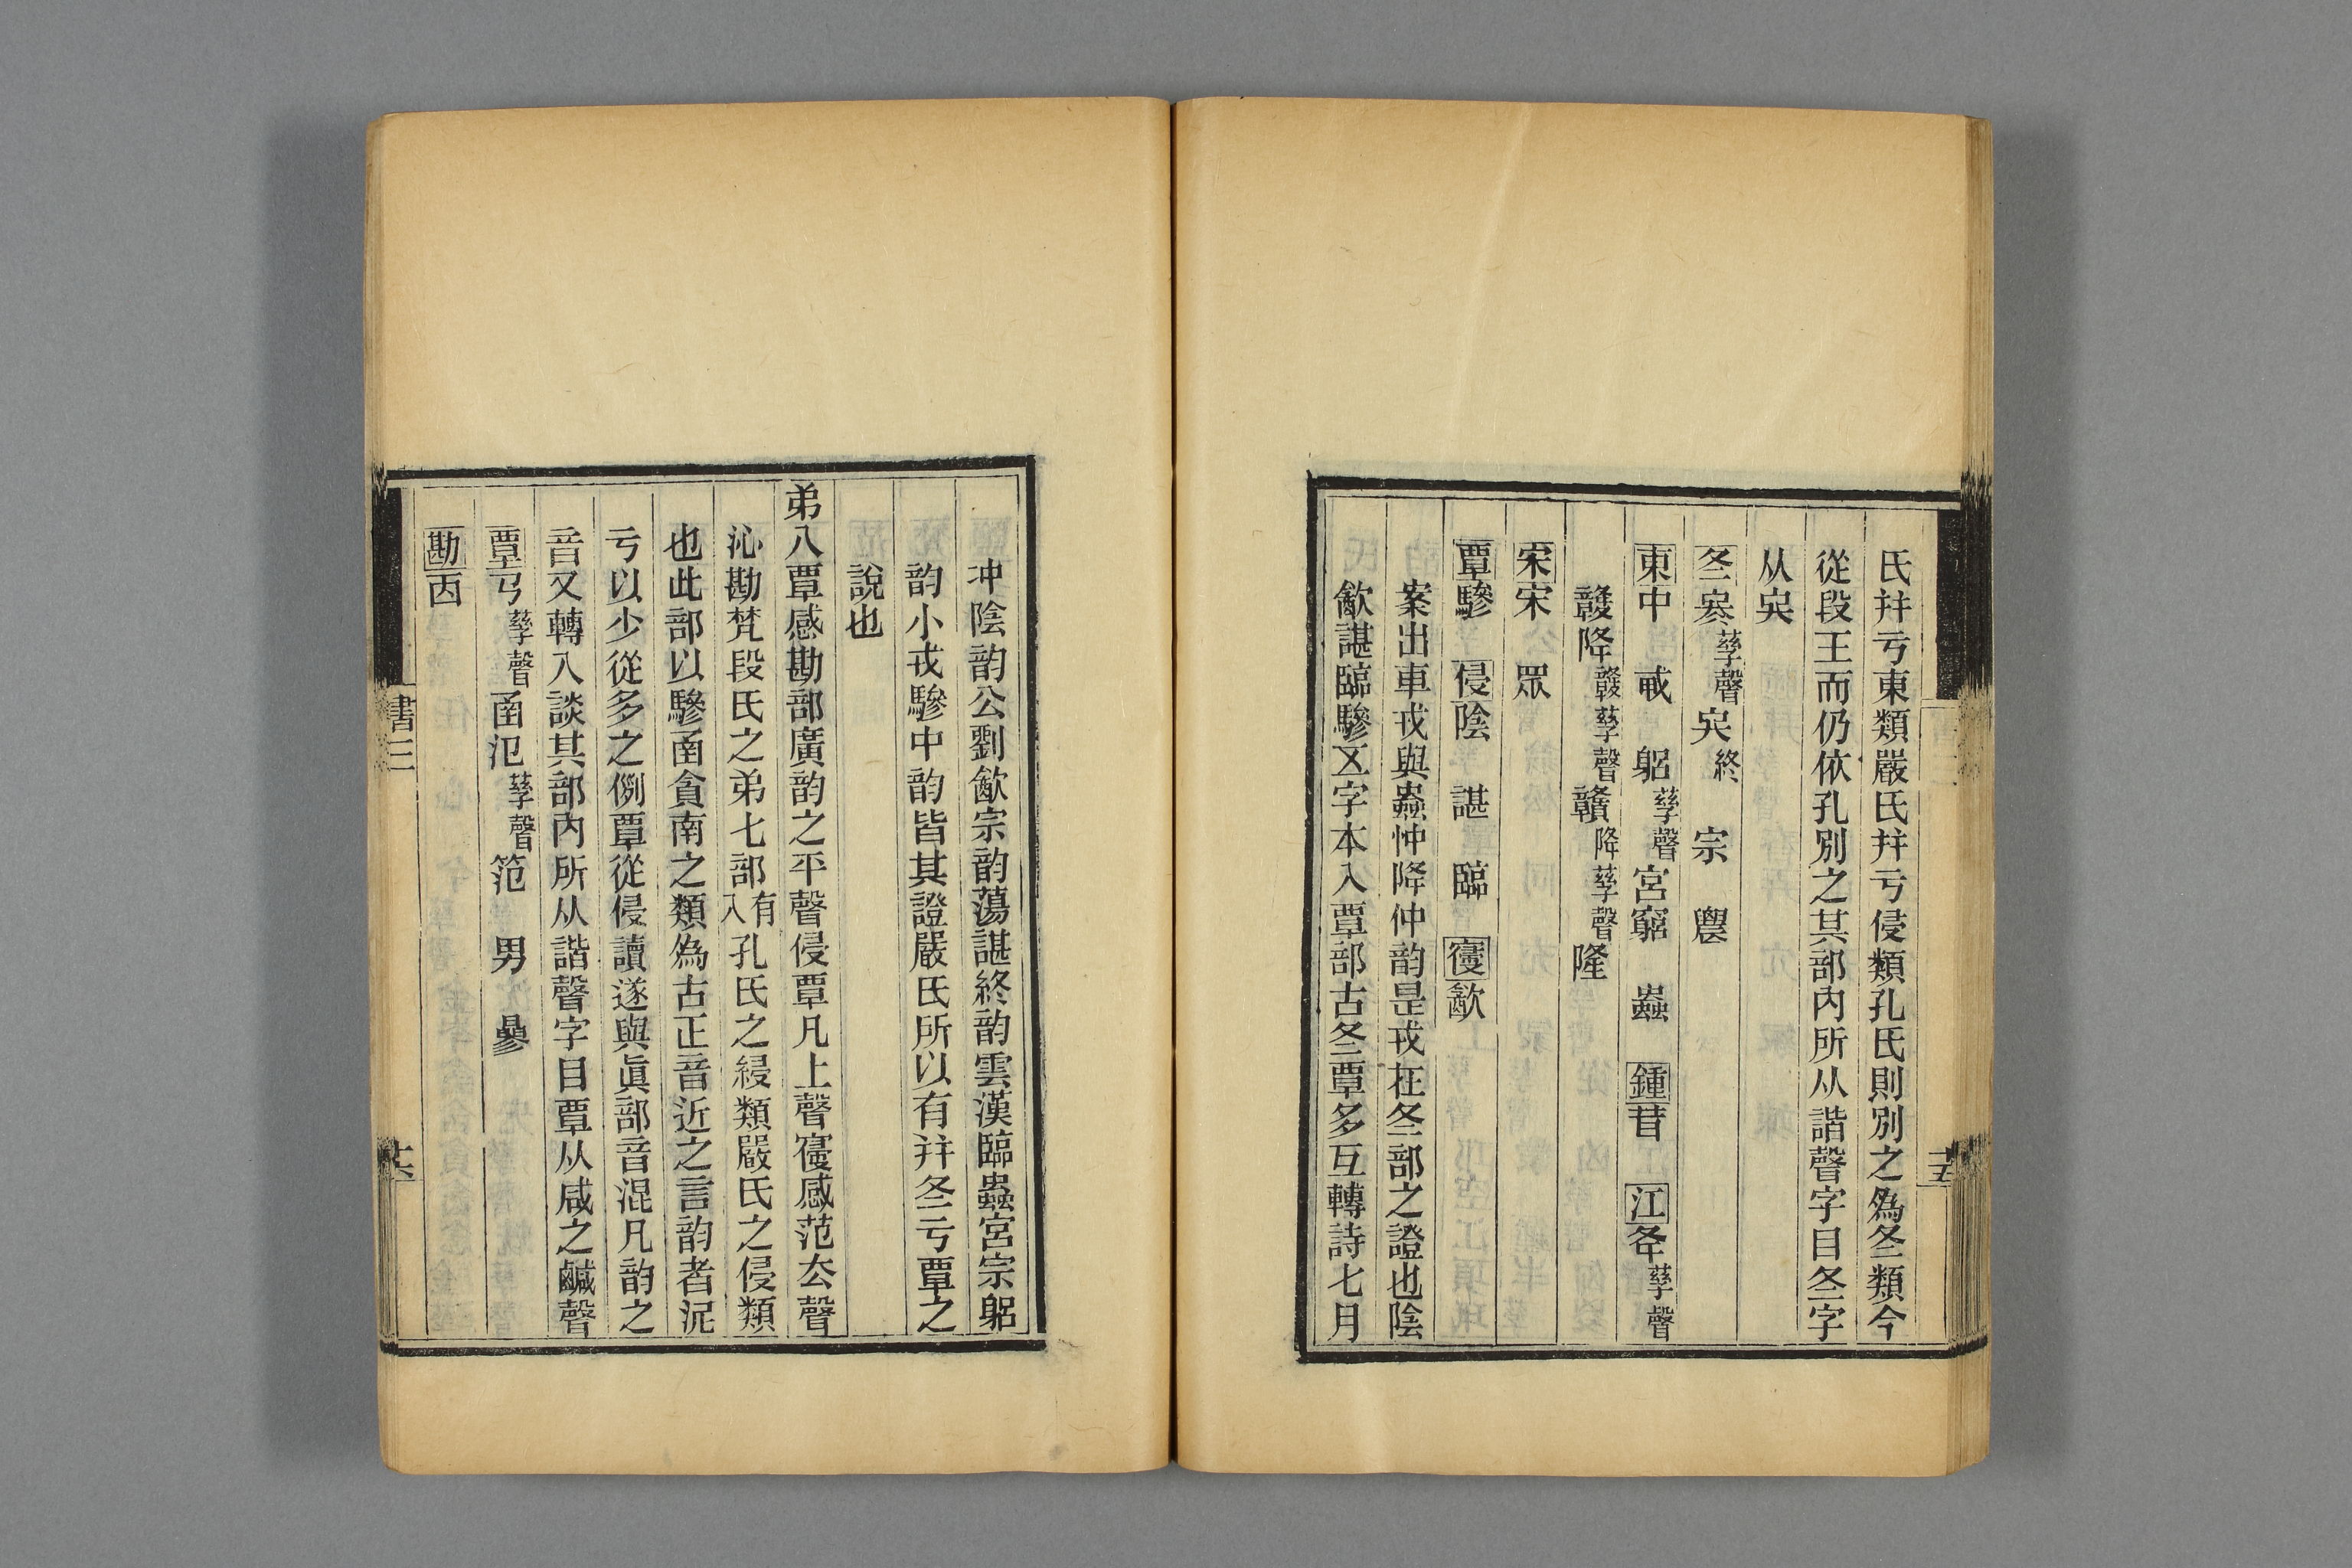 氏幷亏東類嚴氏幷亏侵類孔氏則別之爲冬類今
從段王而仍依孔別之其部內所从諧聲字目冬字
从㚇
冬寒孳聲㚇終　宗　農
東中　戒　躳孳聲宮竆　蟲　鍾茸　江夅孳聲
贛降贛孳聲贛降孳聲隆
宋宋　眾
覃驂　侵陰　諶　臨　寑㱃
案出車戎與蟲忡降仲韵是戎在冬部之證也陰
㱃諶臨驂五字本入覃部古冬覃多互轉詩七月
十五
冲陰韵公劉㱃宗韵蕩諶終韵雲漢臨蟲宮宗躳
韵小戎驂中韵皆其證嚴氏所以有幷冬亏覃之
說也
弟八覃感勘部廣韵之平聲侵覃凡上聲寑感范去聲
沁勘梵段氏之弟七部有入孔氏之綅類嚴氏之侵類
也此部以驂函貪南之類爲古正音近之言韵者泥
亏以少從多之例覃從侵讀遂與眞部音混凡韵之
音又轉入談其部內所从諧聲字目覃从咸之鹹聲
覃𢎘孳聲函氾孳聲范　男　曑
勘㐁
書三
十六